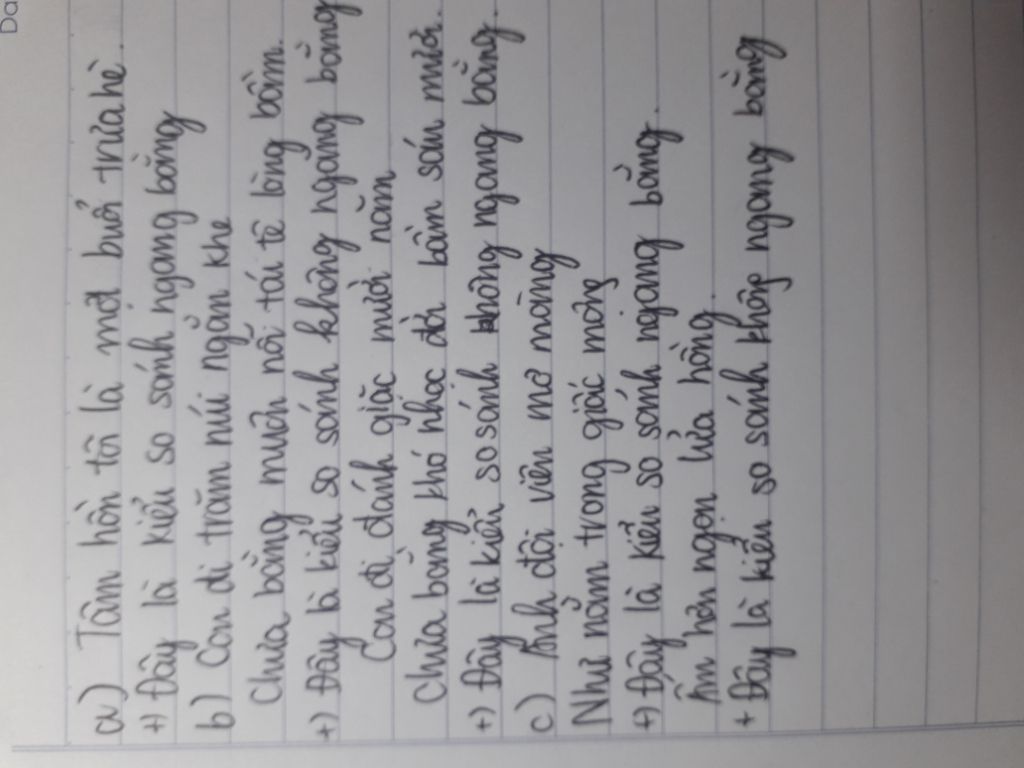 Da
a) Tâm hồn tôi là một buổi trưa hè.
+) Đây là kiểu so sánh ngang bằng
b) Con đi trăm núi ngàn khe
Chưa bằng muôn nỗi tái tê lòng bầm.
+) Đây là kiểu so sánh không ngang bằng
Con đi đánh giặc mười năm
Chưa bằng khó nhọc đời bầm sáu mươi.
+) Đây là kiểu so sánh không ngang bằng.
c) Anh đội viên mơ màng
Như nằm trong giấc mộng
+) Đây là kiểu so sánh ngang bằng.
Ấm hơn ngọn lửa hồng.
+ Đây là kiểu so sánh không ngang bằng